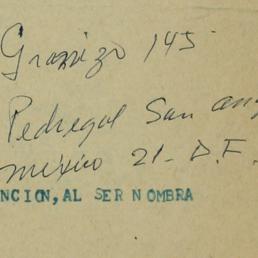 Granizo 145
Pedregal San Ang
México 21- D.F.
NCION, AL SER NOMBRA